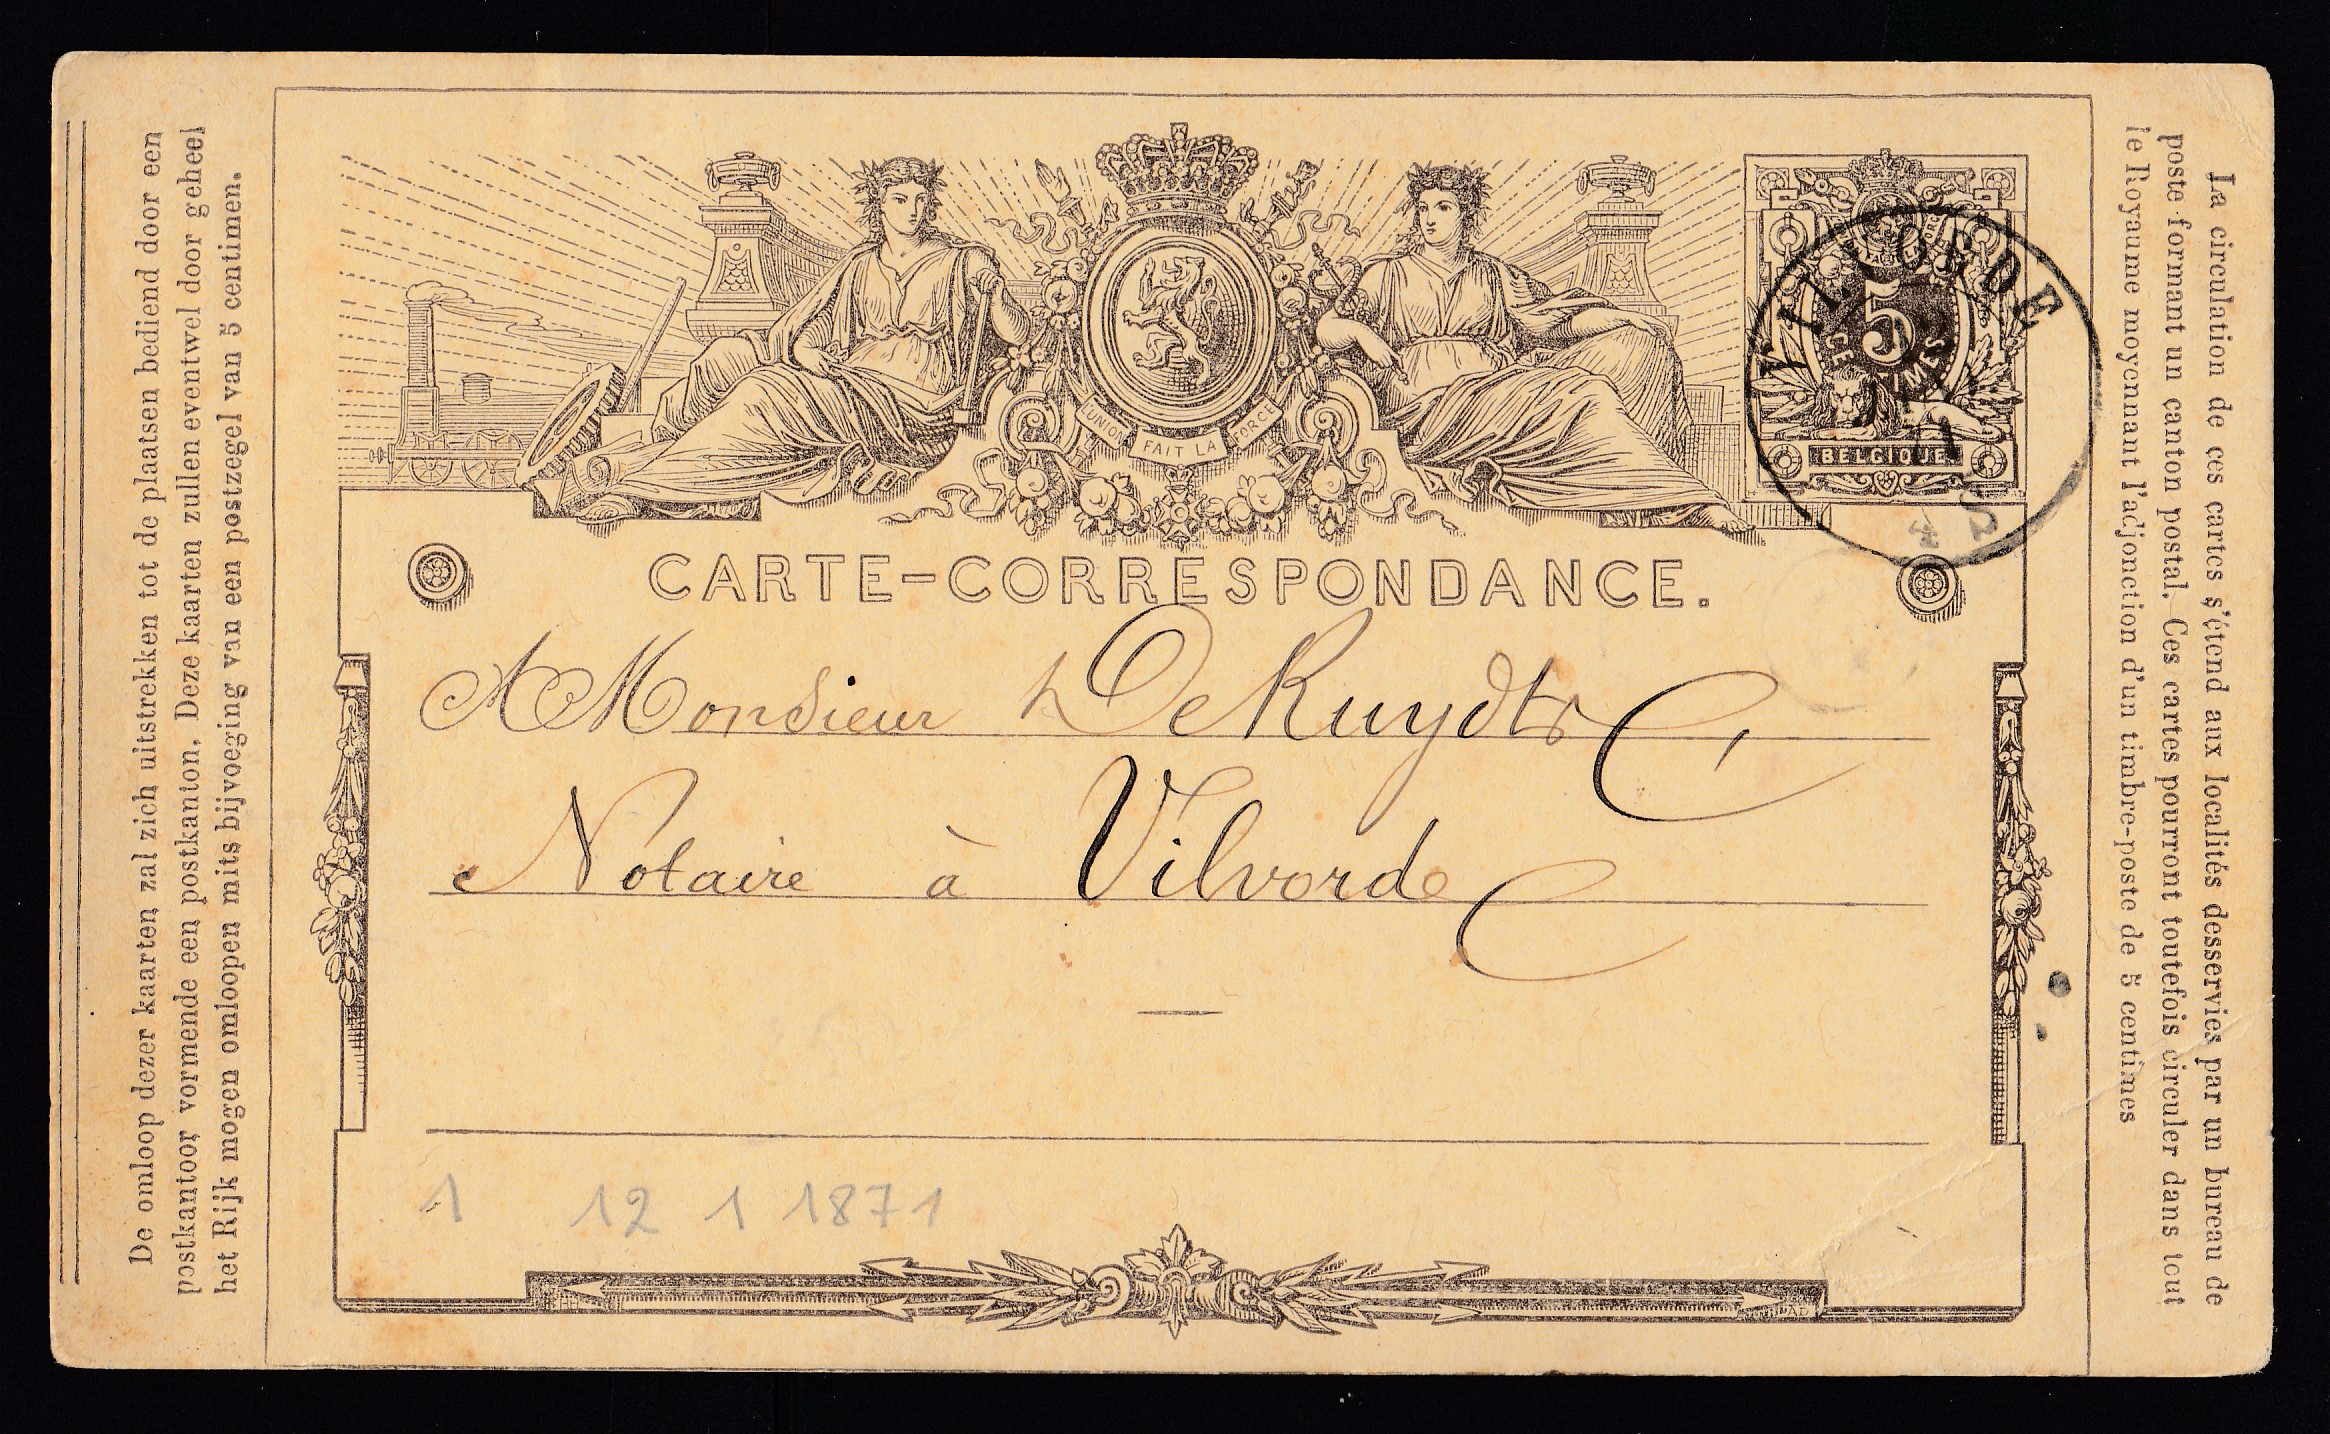 De omloop dezer kaarten zal zich uitstrekken tot de plaatsen bediend door een
postkantoor vormende een postkanton. Deze kaarten zullen eventwel door geheel
het Rijk mogen omloopen mits bijvoeging van een postzegel van 5 centimen.
UNION FAIT LA FORCE
5
BELGIQUE
VILVORDE
CARTE-CORRESPONDANCE.
A Monsieur DeRuydts
Notaire à Vilvorde
1 12 1 1871
La circulation de ces cartes s'étend aux localités desservies par un bureau de
poste formant un canton postal. Ces cartes pourront toutefois circuler dans tout
le Royaume moyennant l'adjonction d'un timbre-poste de 5 centimes